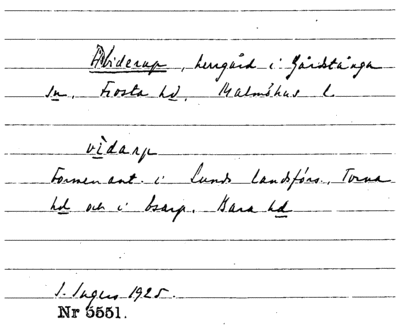 Viderup, herrgård i Gårdstånga
sn, Frosta hd, Malmöhus l.
vìdarp
Formen ant. i Lunds landsförs., Torna
hd och i Esarp, Bara hd
I. Ingers 1925.
Nr 5551.